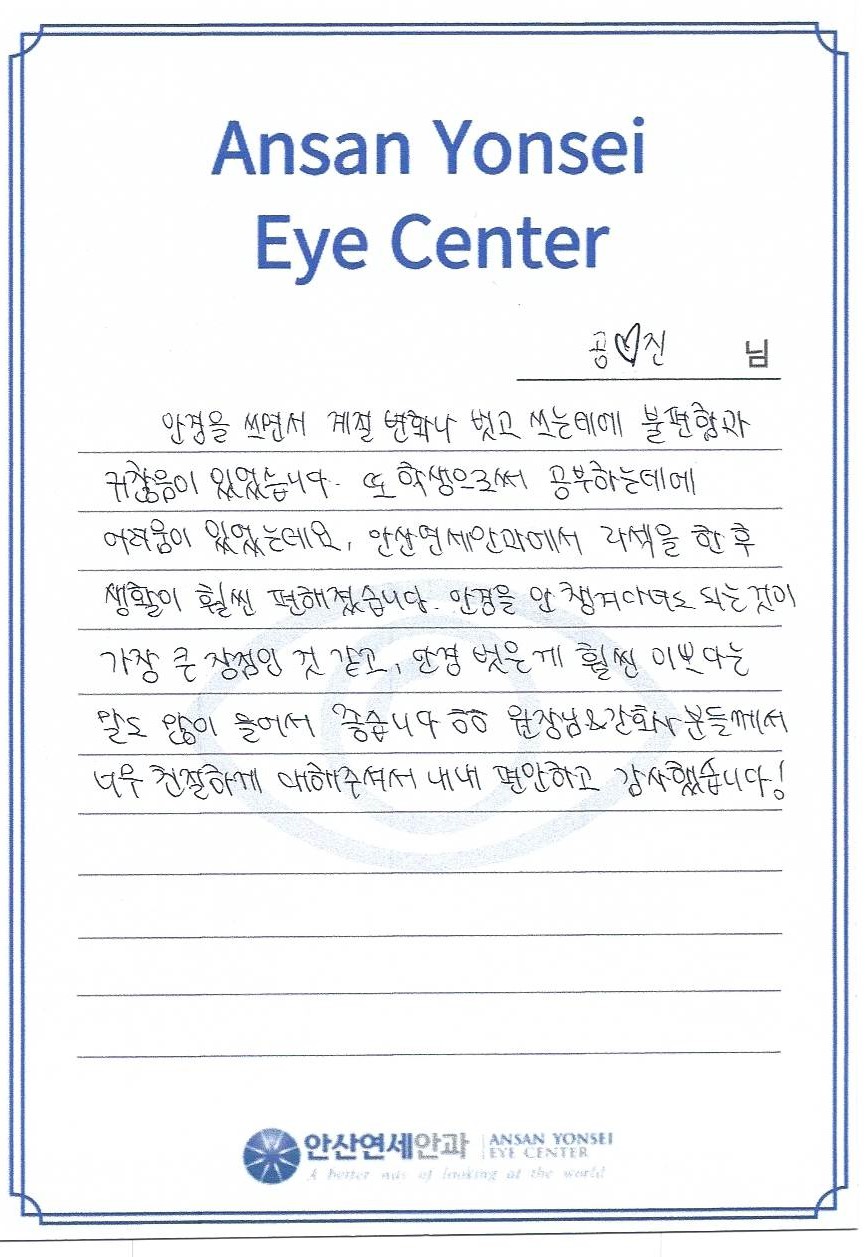 Ansan Yonsei
Eye Center
공♡진 님
안경을 쓰면서 계절 변화나 벗고 쓰는데에 불편함과
귀찮음이 있었습니다. 또 학생으로써 공부하는데에
어려움이 있었는데요, 안산연세안과에서 라섹을 한 후
생활이 훨씬 편해졌습니다. 안경을 안 챙겨다녀도 되는 것이
가장 큰 장점인 것 같고, 안경 벗은게 훨씬 이쁘다는
말도 많이 들어서 좋습니다 ㅎㅎ 원장님&간호사분들께서
너무 친절하게 대해주셔서 내내 편안하고 감사했습니다!
안산연세안과 ANSAN YONSEI
EYE CENTER
A better way of looking at the world